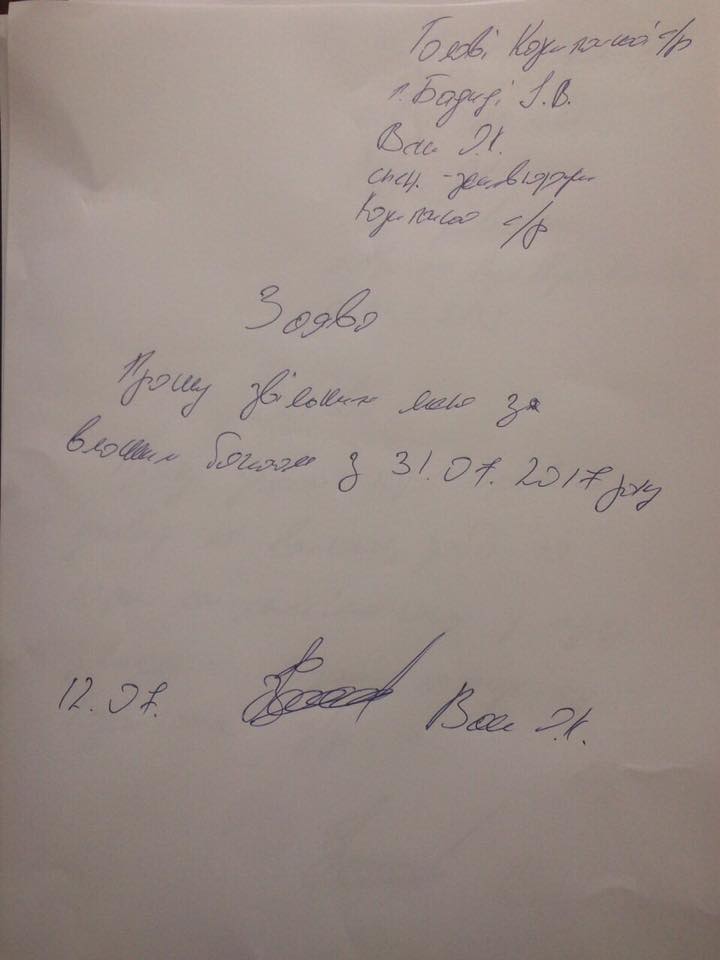 Голові Холмській с/р
п. Бадиці І.В.
Ван Д.Х.
спец. -землевпоряд
с/р
Заява
Прошу звільнити мене за
власним бажанням з 31.07.2017 року
12.07. Ван Д.Х.